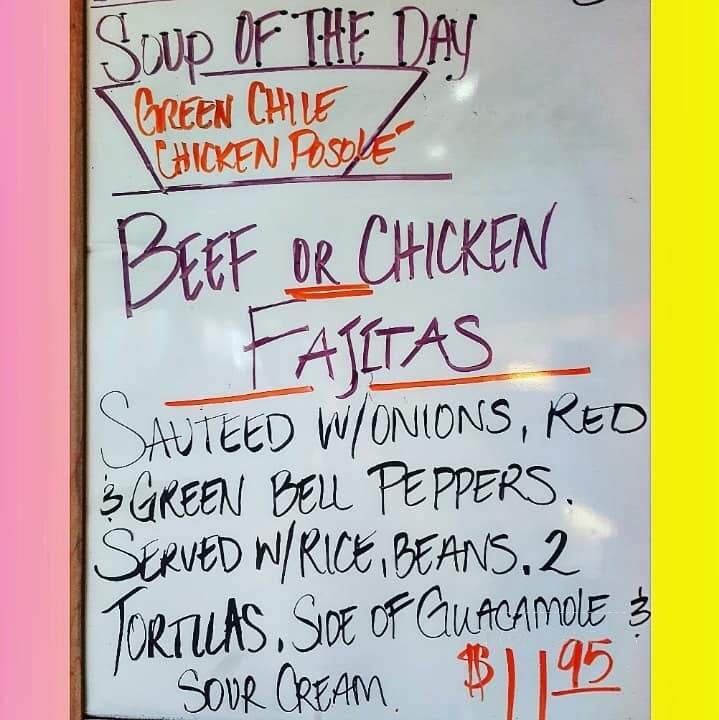 SOUP OF THE DAY
GREEN CHILE
CHICKEN POSOLÉ
BEEF OR CHICKEN
FAJITAS
SAUTEED W/ONIONS, RED
& GREEN BELL PEPPERS.
SERVED W/RICE, BEANS, 2
TORTILLAS, SIDE OF GUACAMOLE &
SOUR CREAM. $11.95